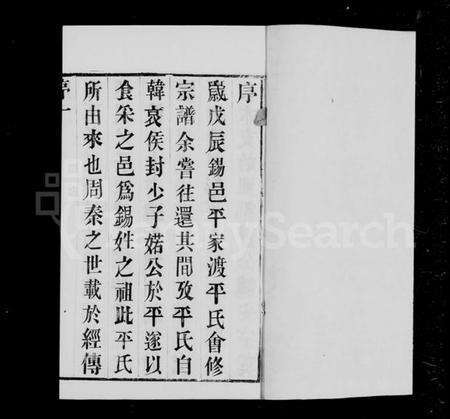 序
歲戊辰錫邑平家渡平氏會修
宗譜余嘗往還其間攷平氏自
韓哀侯封少子婼公於平遂以
食采之邑爲錫姓之祖此平氏
所由來也周秦之世載於經傳
序一